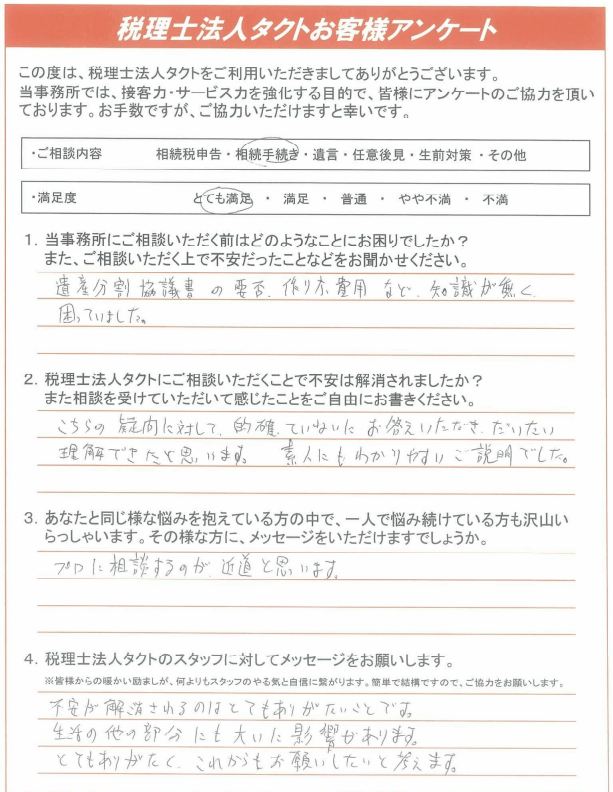 税理士法人タクトお客様アンケート
この度は、税理士法人タクトをご利用いただきましてありがとうございます。
当事務所では、接客力・サービス力を強化する目的で、皆様にアンケートのご協力を頂い
ております。お手数ですが、ご協力いただけますと幸いです。
・ご相談内容 相続税申告・相続手続き・遺言・任意後見・生前対策・その他
・満足度 とても満足 ・ 満足 ・ 普通 ・ やや不満 ・ 不満
1. 当事務所にご相談いただく前はどのようなことにお困りでしたか？
また、ご相談いただく上で不安だったことなどをお聞かせください。
遺産分割協議書の要否、作り方、費用など、知識が無く、
困っていました。
2. 税理士法人タクトにご相談いただくことで不安は解消されましたか？
また相談を受けていただいて感じたことをご自由にお書きください。
こちらの疑問に対して、的確、ていねいにお答えいただき、だいたい
理解できたと思います。 素人にもわかりやすいご説明でした。
3. あなたと同じ様な悩みを抱えている方の中で、一人で悩み続けている方も沢山い
らっしゃいます。その様な方に、メッセージをいただけますでしょうか。
プロに相談するのが、近道と思います。
4. 税理士法人タクトのスタッフに対してメッセージをお願いします。
※皆様からの暖かい励ましが、何よりもスタッフのやる気と自信に繋がります。簡単で結構ですので、ご協力をお願いします。
不安が解消されるのはとてもありがたいことです。
生活の他の部分にも大いに影響があります。
とてもありがたく、これからもお願いしたいと考えます。